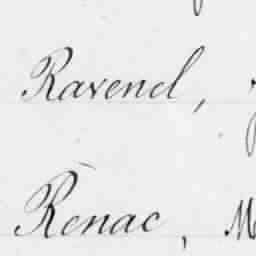 Ravenel,
Rénac, M